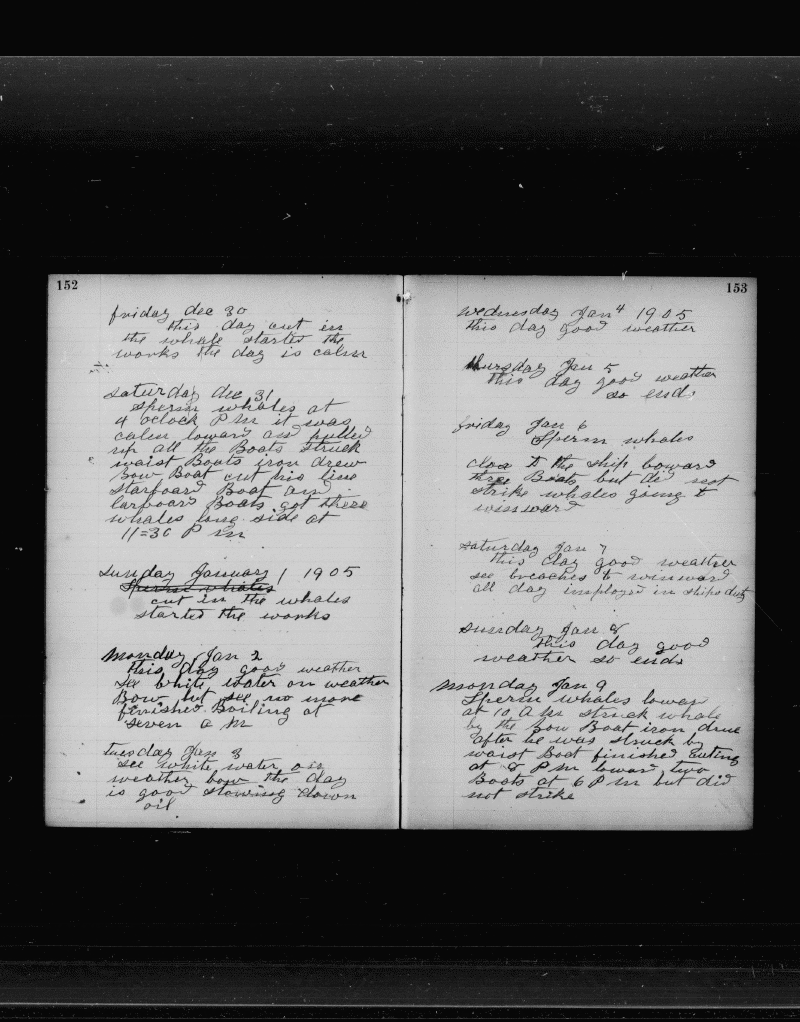 152
friday dec 30
this day cut in
the whale started the
works the day is calm
saturday dec 31
sperm whales at
4 oclock P M it was
calm loward and pulled
up all the Boats struck
waist Boats iron drew
Bow Boat cut his line
starboard Boat and
larboard Boats got there
whales long side at
11=30 P M
sunday January 1 1905
Sperm whales
cut in the whales
started the works
monday Jan 2
this day good weather
see white water on weather
Bow but see no more
finished Boiling at
seven a m
tuesday Jan 3
see white water on
weather bow the day
is good stowing down
oil
153
wednesday Jan 4 1905
this day good weather
thursday Jan 5
this day good weather
so ends
friday Jan 6
Sperm whales
close to the ship loward
three Boats but did not
strike whales going to
winward
saturday Jan 7
this day good weather
see breaches to winward
all day imployed in ships duty
sunday Jan 8
this day good
weather so ends
monday Jan 9
Sperm whales lowar
at 10 A M struck whale
by the Bow Boat iron drue
after he was struck by
waist Boat finished Cuting
at 5 P M loward two
Boats at 6 P M but did
not strike